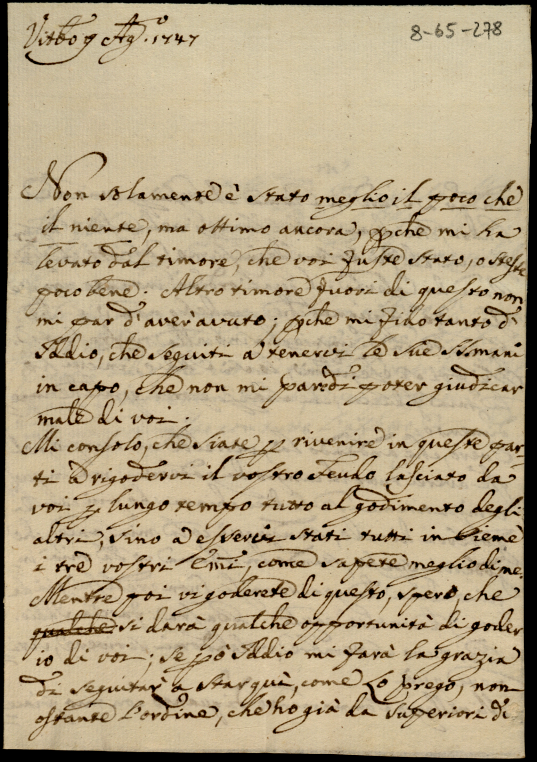 Vitbo 9 Ag.o 1747
8-65-278
Non solamente è stato meglio il poco che
il niente, ma ottimo ancora, pche mi ha
levato dal timore, che voi fuste stato, o steste
poco bene. Altro timore fuori di questo non
mi par d'aver avuto; pche mi fido tanto d'
Iddio, che seguiti a tenervi le sue Ssme mani
in capo, che non mi par di poter giudicar
male di voi.
Mi consolo, che siate p rivenire in queste par-
ti a rigodervi il vostro feudo lasciato da
voi p lungo tempo tutto al godimento degli
altri, sino a esservi stati tutti insieme
i trè vostri Emi, come sapete meglio di me.
Mentre poi vi goderete di questo, spero, che
qualche si darà qualche opportunità di goder
io di voi; se pò Iddio mi farà la grazia
di seguitar a star quì, come Lo prego, non
ostante l'ordine, che ho già da Superiori di